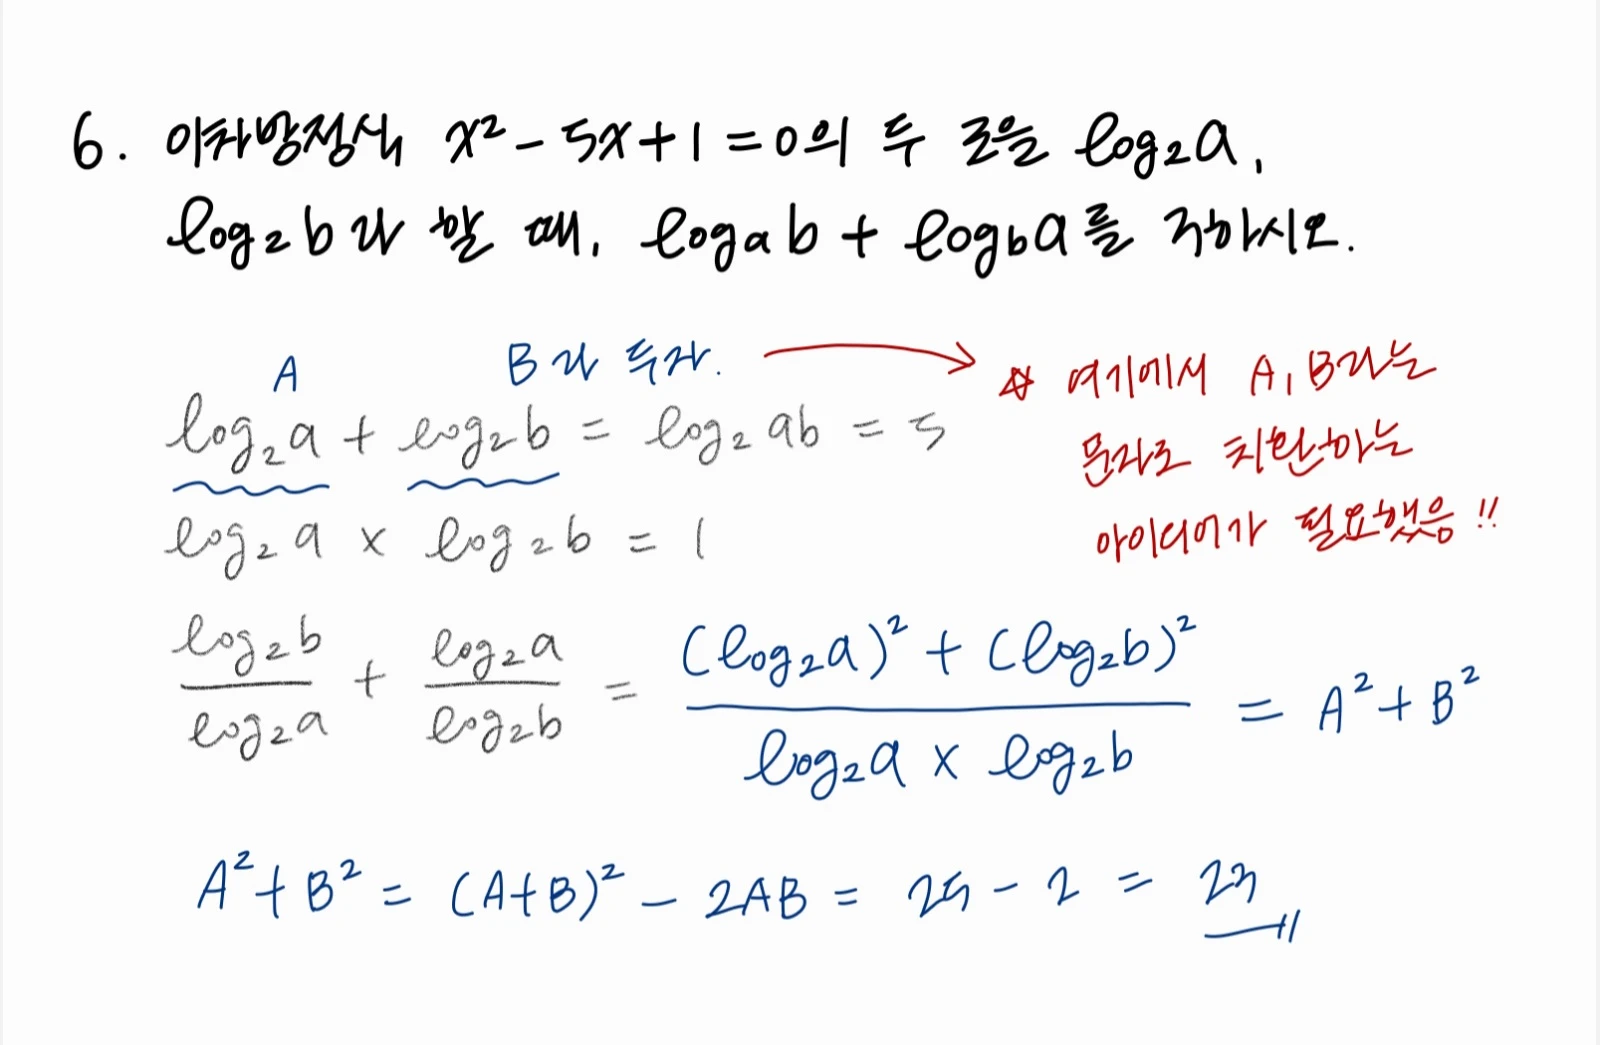 6. 이차방정식 x² - 5x + 1 = 0의 두 근을 log₂a,
log₂b라 할 때, logₐb + log_b a를 구하시오.
A B라 두자. → ☆ 여기에서 A, B라는
log₂a + log₂b = log₂ab = 5
문자로 치환하는
아이디어가 필요했음!!
log₂a × log₂b = 1
log₂b/log₂a + log₂a/log₂b = ((log₂a)² + (log₂b)²)/(log₂a × log₂b) = A² + B²
A² + B² = (A+B)² - 2AB = 25 - 2 = 23